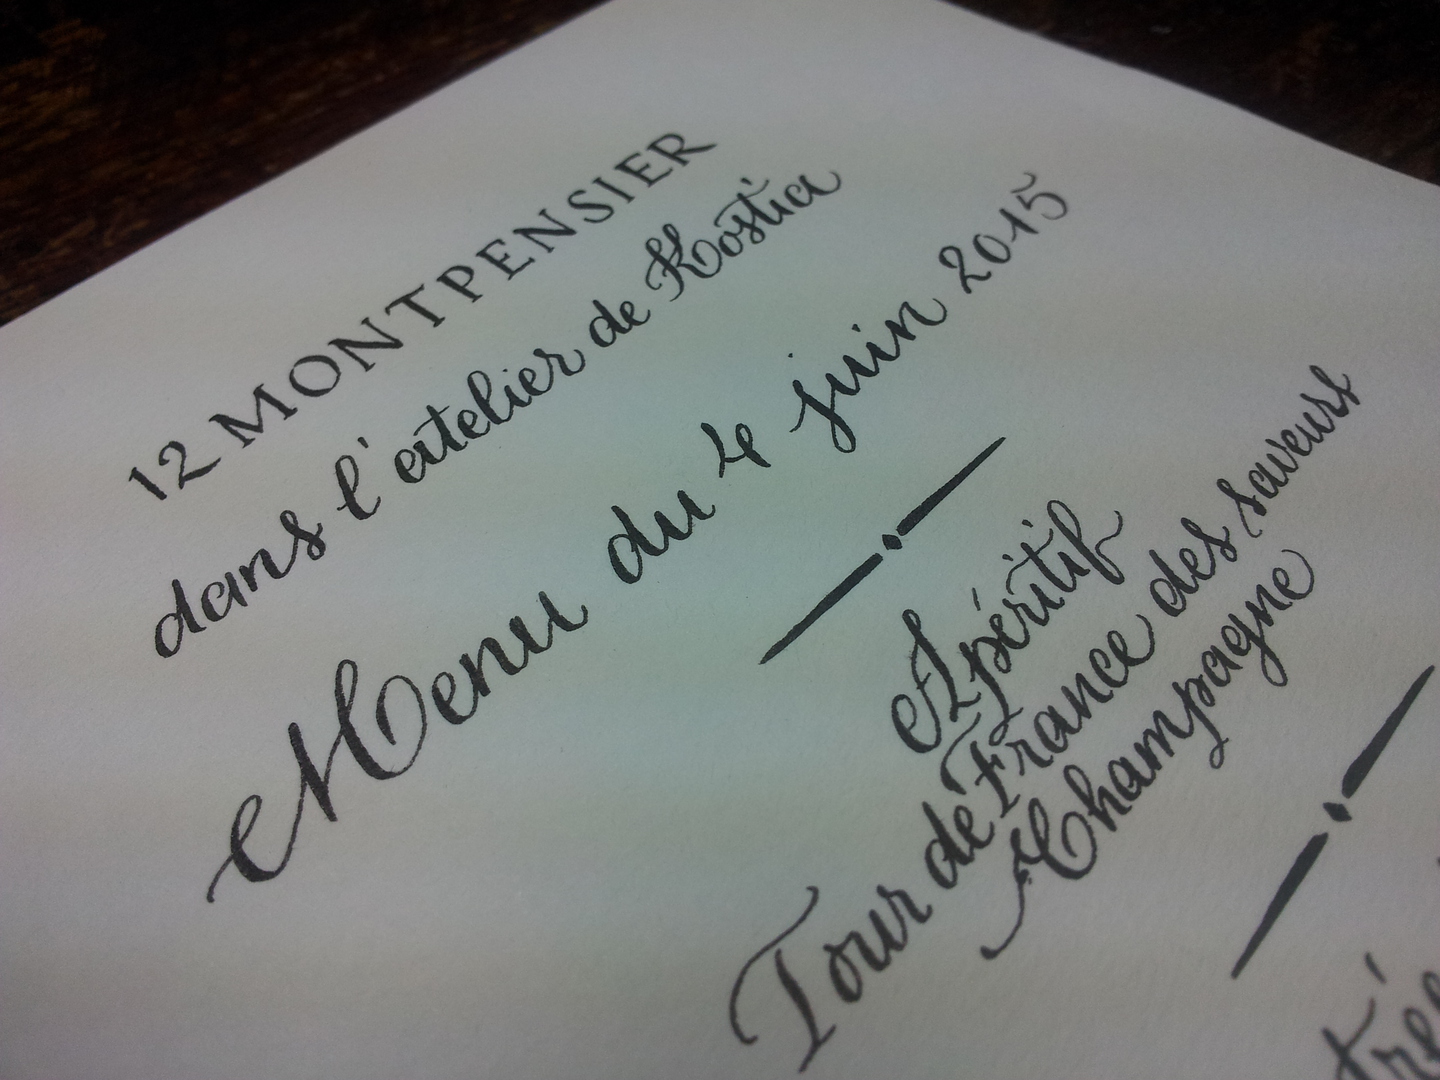 12 MONTPENSIER
dans l'atelier de Kostia
Menu du 4 juin 2015
Apéritif
Tour de France des saveurs
Champagne